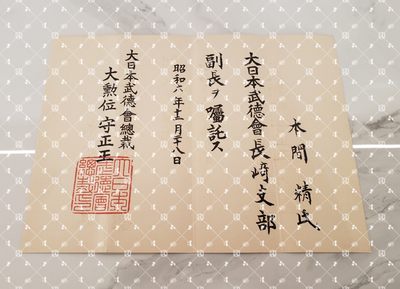 本間 清氏
大日本武德會長崎支部
副長ヲ囑託ス
昭和六年十二月廿八日
大日本武德會總裁
大勲位守正王